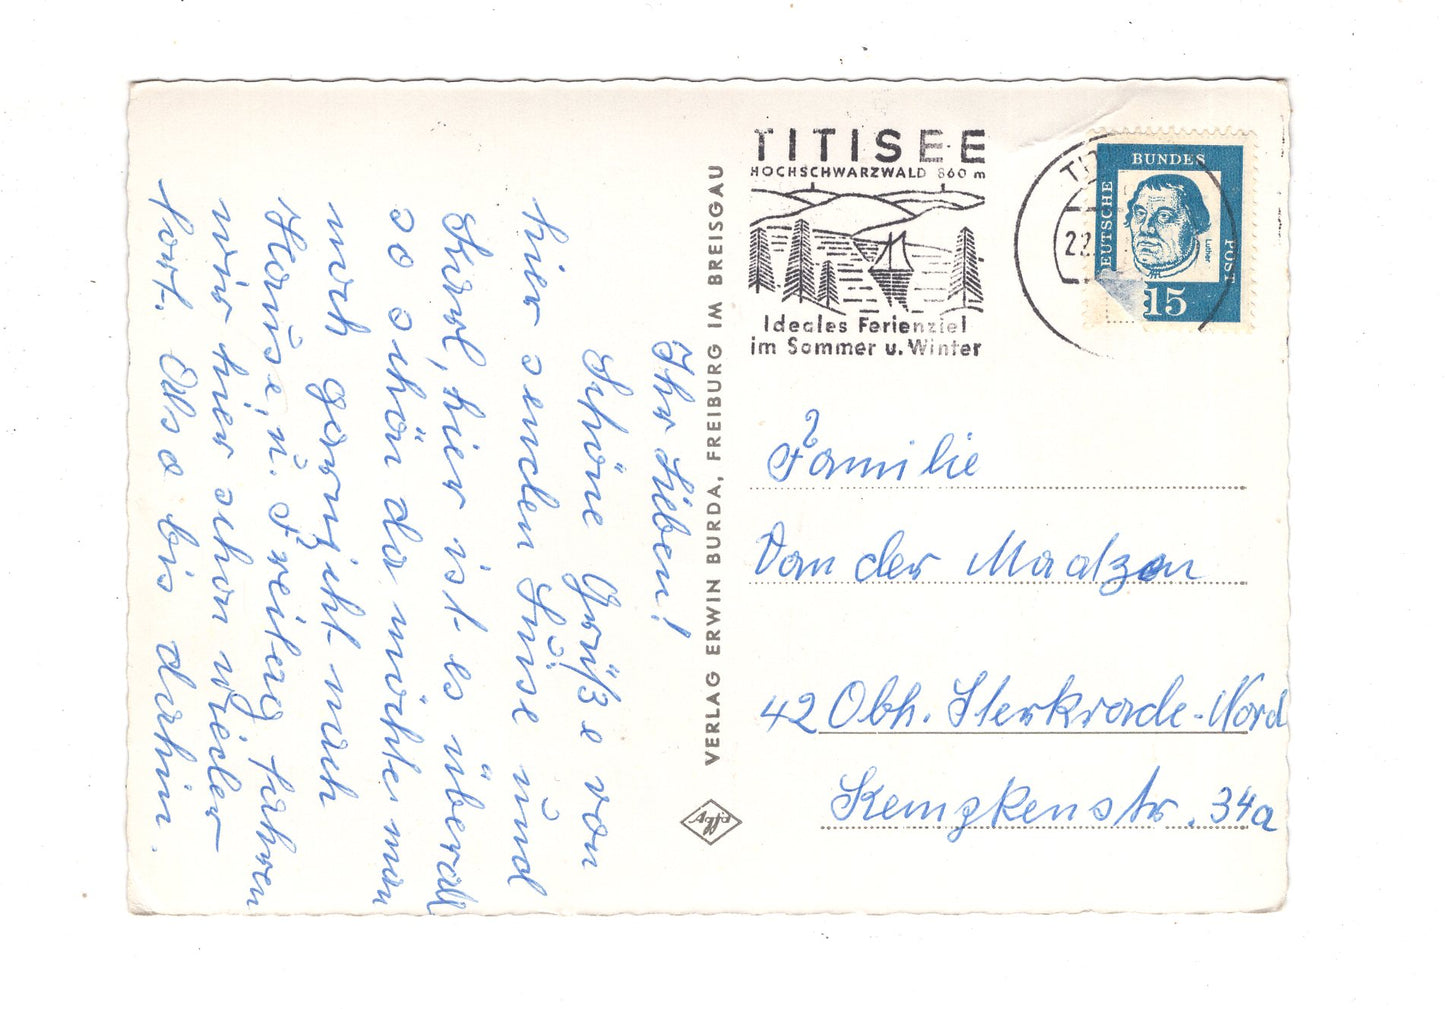 TITISEE
HOCHSCHWARZWALD 860 m
Ideales Ferienziel
im Sommer u. Winter
DEUTSCHE
BUNDES
POST
Luther
15
TI
22
VERLAG ERWIN BURDA, FREIBURG IM BREISGAU
Agfa
Ihr Lieben!
Schöne Grüße von
hier senden Luise und
Karl, hier ist es überall
so schön da möchte man
noch garnicht nach
Hause, u. Freitag fahren
wir hier schon wieder
fort. Also bis dahin.
Familie
Van der
42 Obh. Sterkrade-Nord
34a